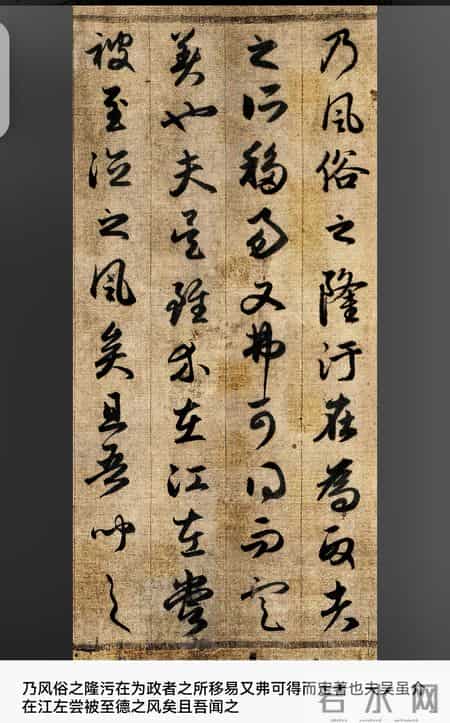 乃風俗之隆汙在為政者
之所移易又弗可得而定
著也夫吳雖介在江左嘗
被至德之風矣且吾聞之
乃风俗之隆污在为政者之所移易又弗可得而定著也夫吴虽介
在江左尝被至德之风矣且吾闻之
若水网